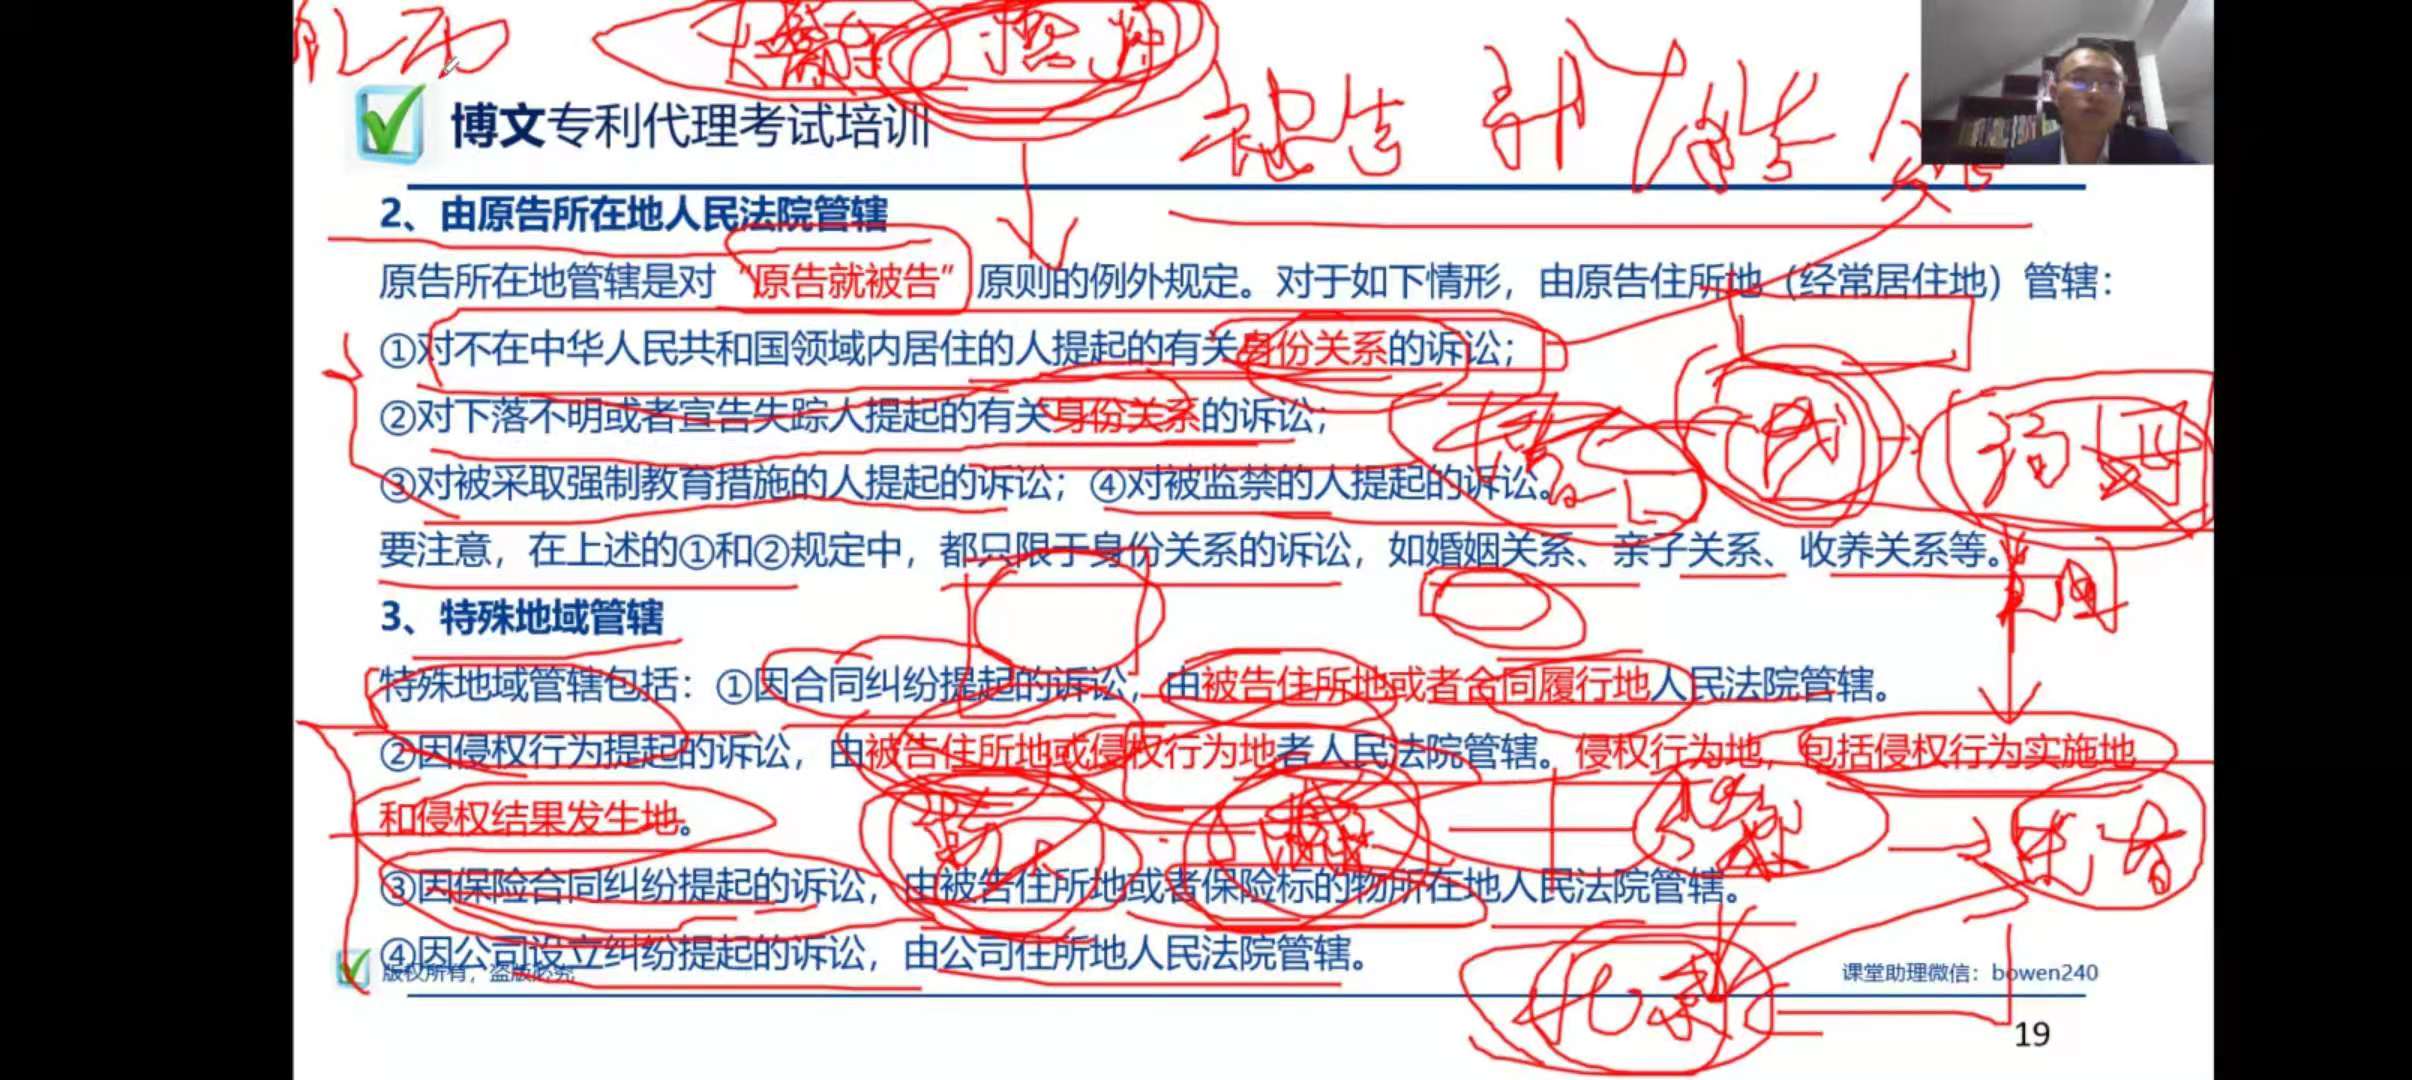 博文专利代理考试培训
被告 原告
2、由原告所在地人民法院管辖
原告所在地管辖是对“原告就被告”原则的例外规定。对于如下情形，由原告住所地（经常居住地）管辖：
①对不在中华人民共和国领域内居住的人提起的有关身份关系的诉讼；
②对下落不明或者宣告失踪人提起的有关身份关系的诉讼；
③对被采取强制教育措施的人提起的诉讼；④对被监禁的人提起的诉讼。
要注意，在上述的①和②规定中，都只限于身份关系的诉讼，如婚姻关系、亲子关系、收养关系等。
3、特殊地域管辖
特殊地域管辖包括：①因合同纠纷提起的诉讼，由被告住所地或者合同履行地人民法院管辖。
②因侵权行为提起的诉讼，由被告住所地或侵权行为地者人民法院管辖。侵权行为地，包括侵权行为实施地
和侵权结果发生地。
③因保险合同纠纷提起的诉讼，由被告住所地或者保险标的物所在地人民法院管辖。
④因公司设立纠纷提起的诉讼，由公司住所地人民法院管辖。
版权所有，盗版必究
课堂助理微信：bowen240
北京
19